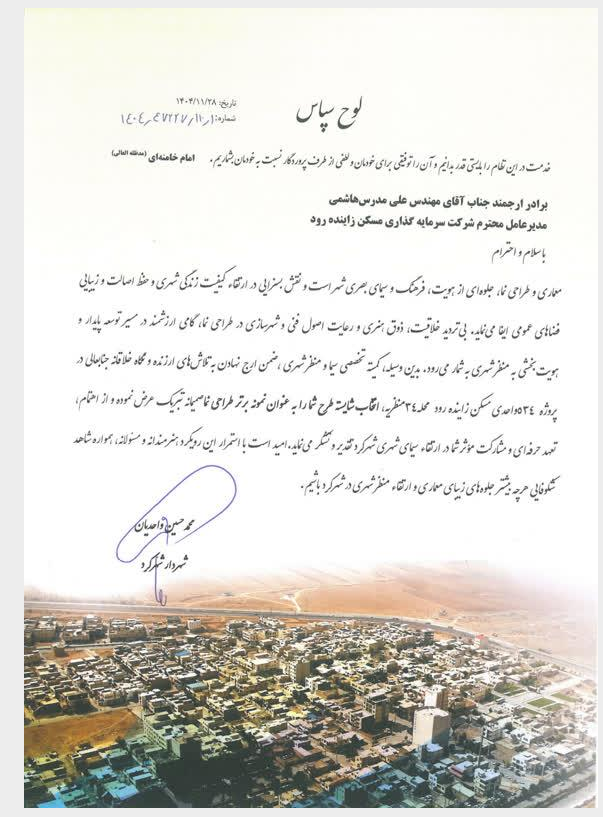 لوح سپاس
تاریخ: ۱۴۰۴/۱۱/۲۸
شماره:
خدمت در این نظام را بایستی قدر بدانیم و آن را توفیقی برای خودمان و لطفی از طرف پروردگار نسبت به خودمان بشماریم. امام خامنه‌ای (مدظله العالی)
برادر ارجمند جناب آقای مهندس علی مدرس‌هاشمی
مدیرعامل محترم شرکت سرمایه گذاری مسکن زاینده رود
با سلام و احترام
معماری و طراحی نما، جلوه‌ای از هویت، فرهنگ و سیمای بصری شهر است و نقش بسزایی در ارتقاء کیفیت زندگی شهری و حفظ اصالت و زیبایی
فضاهای عمومی ایفا می‌نماید. بی‌تردید خلاقیت، ذوق هنری و رعایت اصول فنی و شهرسازی در طراحی نما، گامی ارزشمند در مسیر توسعه پایدار و
هویت‌بخشی به منظر شهری به شمار می‌رود. بدین وسیله، کمیته تخصصی سیما و منظر شهری، ضمن ارج نهادن به تلاش‌های ارزنده و نگاه خلاقانه جنابعالی در
پروژه ۵۳۴واحدی مسکن زاینده رود محله۳۴منظریه، انتخاب شایسته طرح شما را به عنوان نمونه برتر طراحی نما صمیمانه تبریک عرض نموده و از اهتمام،
تعهد حرفه‌ای و مشارکت مؤثر شما در ارتقاء سیمای شهری شهرکرد تقدیر و تشکر می‌نماید. امید است با استمرار این رویکرد هنرمندانه و مسئولانه، همواره شاهد
شکوفایی هرچه بیشتر جلوه‌های زیبای معماری و ارتقاء منظر شهری در شهرکرد باشیم.
محمد حسین واحدیان
شهردار شهرکرد